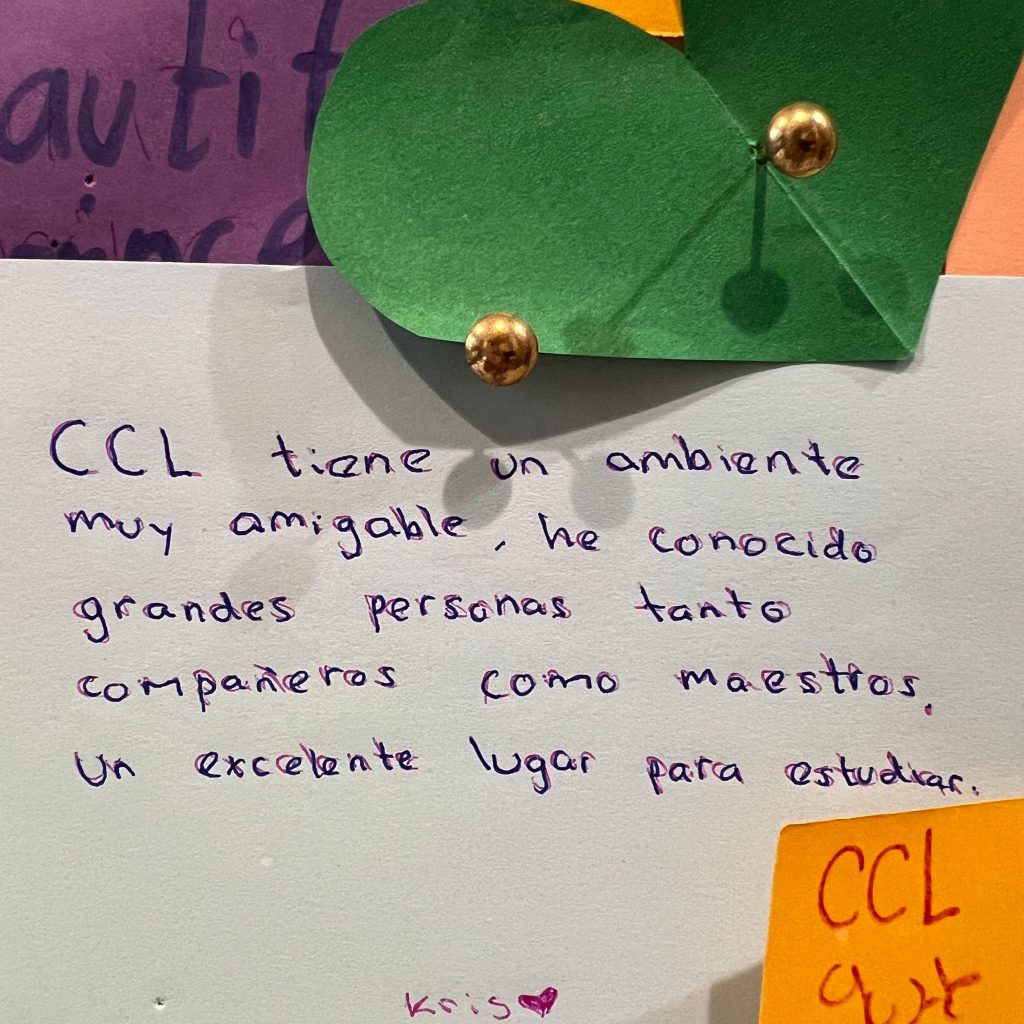 CCL tiene un ambiente
muy amigable, he conocido
grandes personas tanto
compañeros como maestros.
Un excelente lugar para estudiar.
Kris
CCL